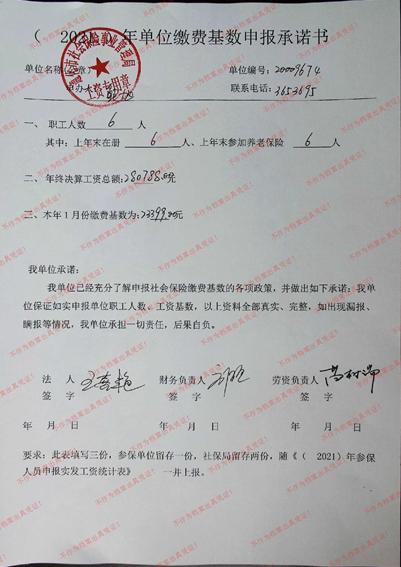 （ 2021 ）年单位缴费基数申报承诺书
单位名称（章）
单位编号：20009674
联系电话：3653695
工资专用章
一、 职工人数 6 人
其中：上年末在册 6 人、上年末参加养老保险 6 人
二、年终决算工资总额：280788.00元
三、本年1月份缴费基数为：23399.00元
我单位承诺：
我单位已经充分了解申报社会保险缴费基数的各项政策，并做出如下承诺：我单
位保证如实申报单位职工人数、工资基数，以上资料全部真实、完整，如出现漏报、
瞒报等情况，我单位承担一切责任，后果自负。
法 人 财务负责人 劳资负责人
签 字 签 字 签 字
年 月 日 年 月 日 年 月 日
要求：此表填写三份，参保单位留存一份，社保局留存两份，随《（ 2021）年参保
人员申报实发工资统计表》 一并上报。
不作为档案出具凭证！